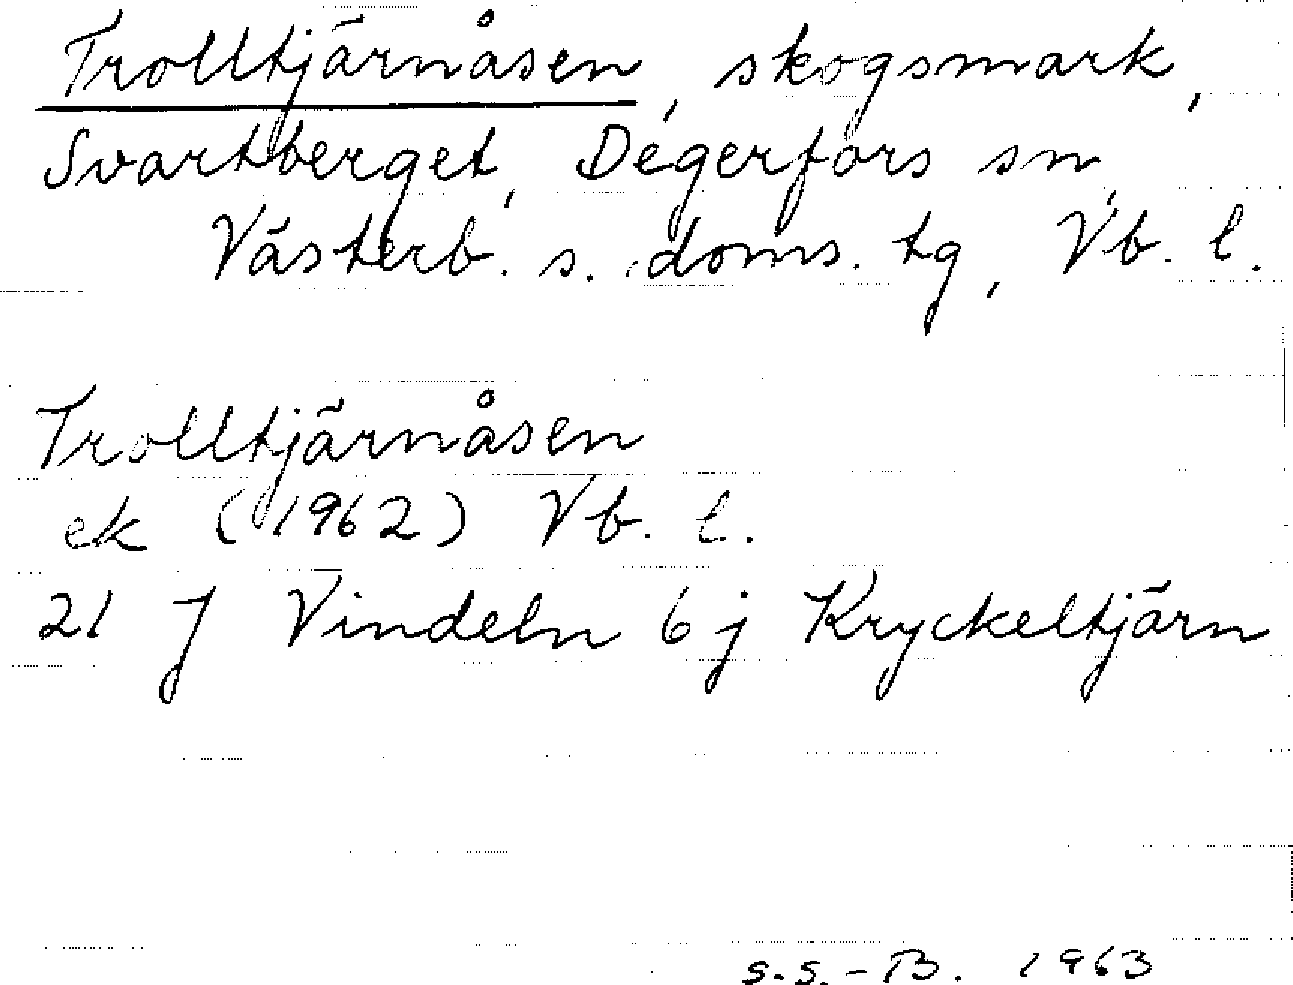 Trolltjärnåsen, skogsmark,
Svartberget, Degerfors sn,
Västerb. s. doms. tg, Vb. l.
Trolltjärnåsen
ek (1962) Vb. l.
21 J Vindeln 6 j Kryckeltjärn
S.S.-B. 1963